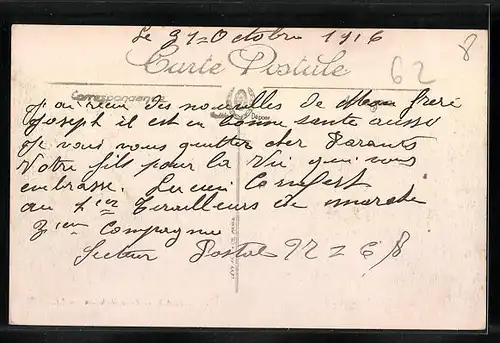 Le 31=Octobre 1916
Carte Postale
62
8
Correspondance
J'ai reçu des nouvelles de Mon frere
Joseph il est en bonne sante aussi
Je vais vous quitter cher Parants
Votre fils pour la Vie qui vous
embrasse. Lucien
au 1ier Tirailleurs de marche
3ieme Compagnie
Secteur Postal N= 6